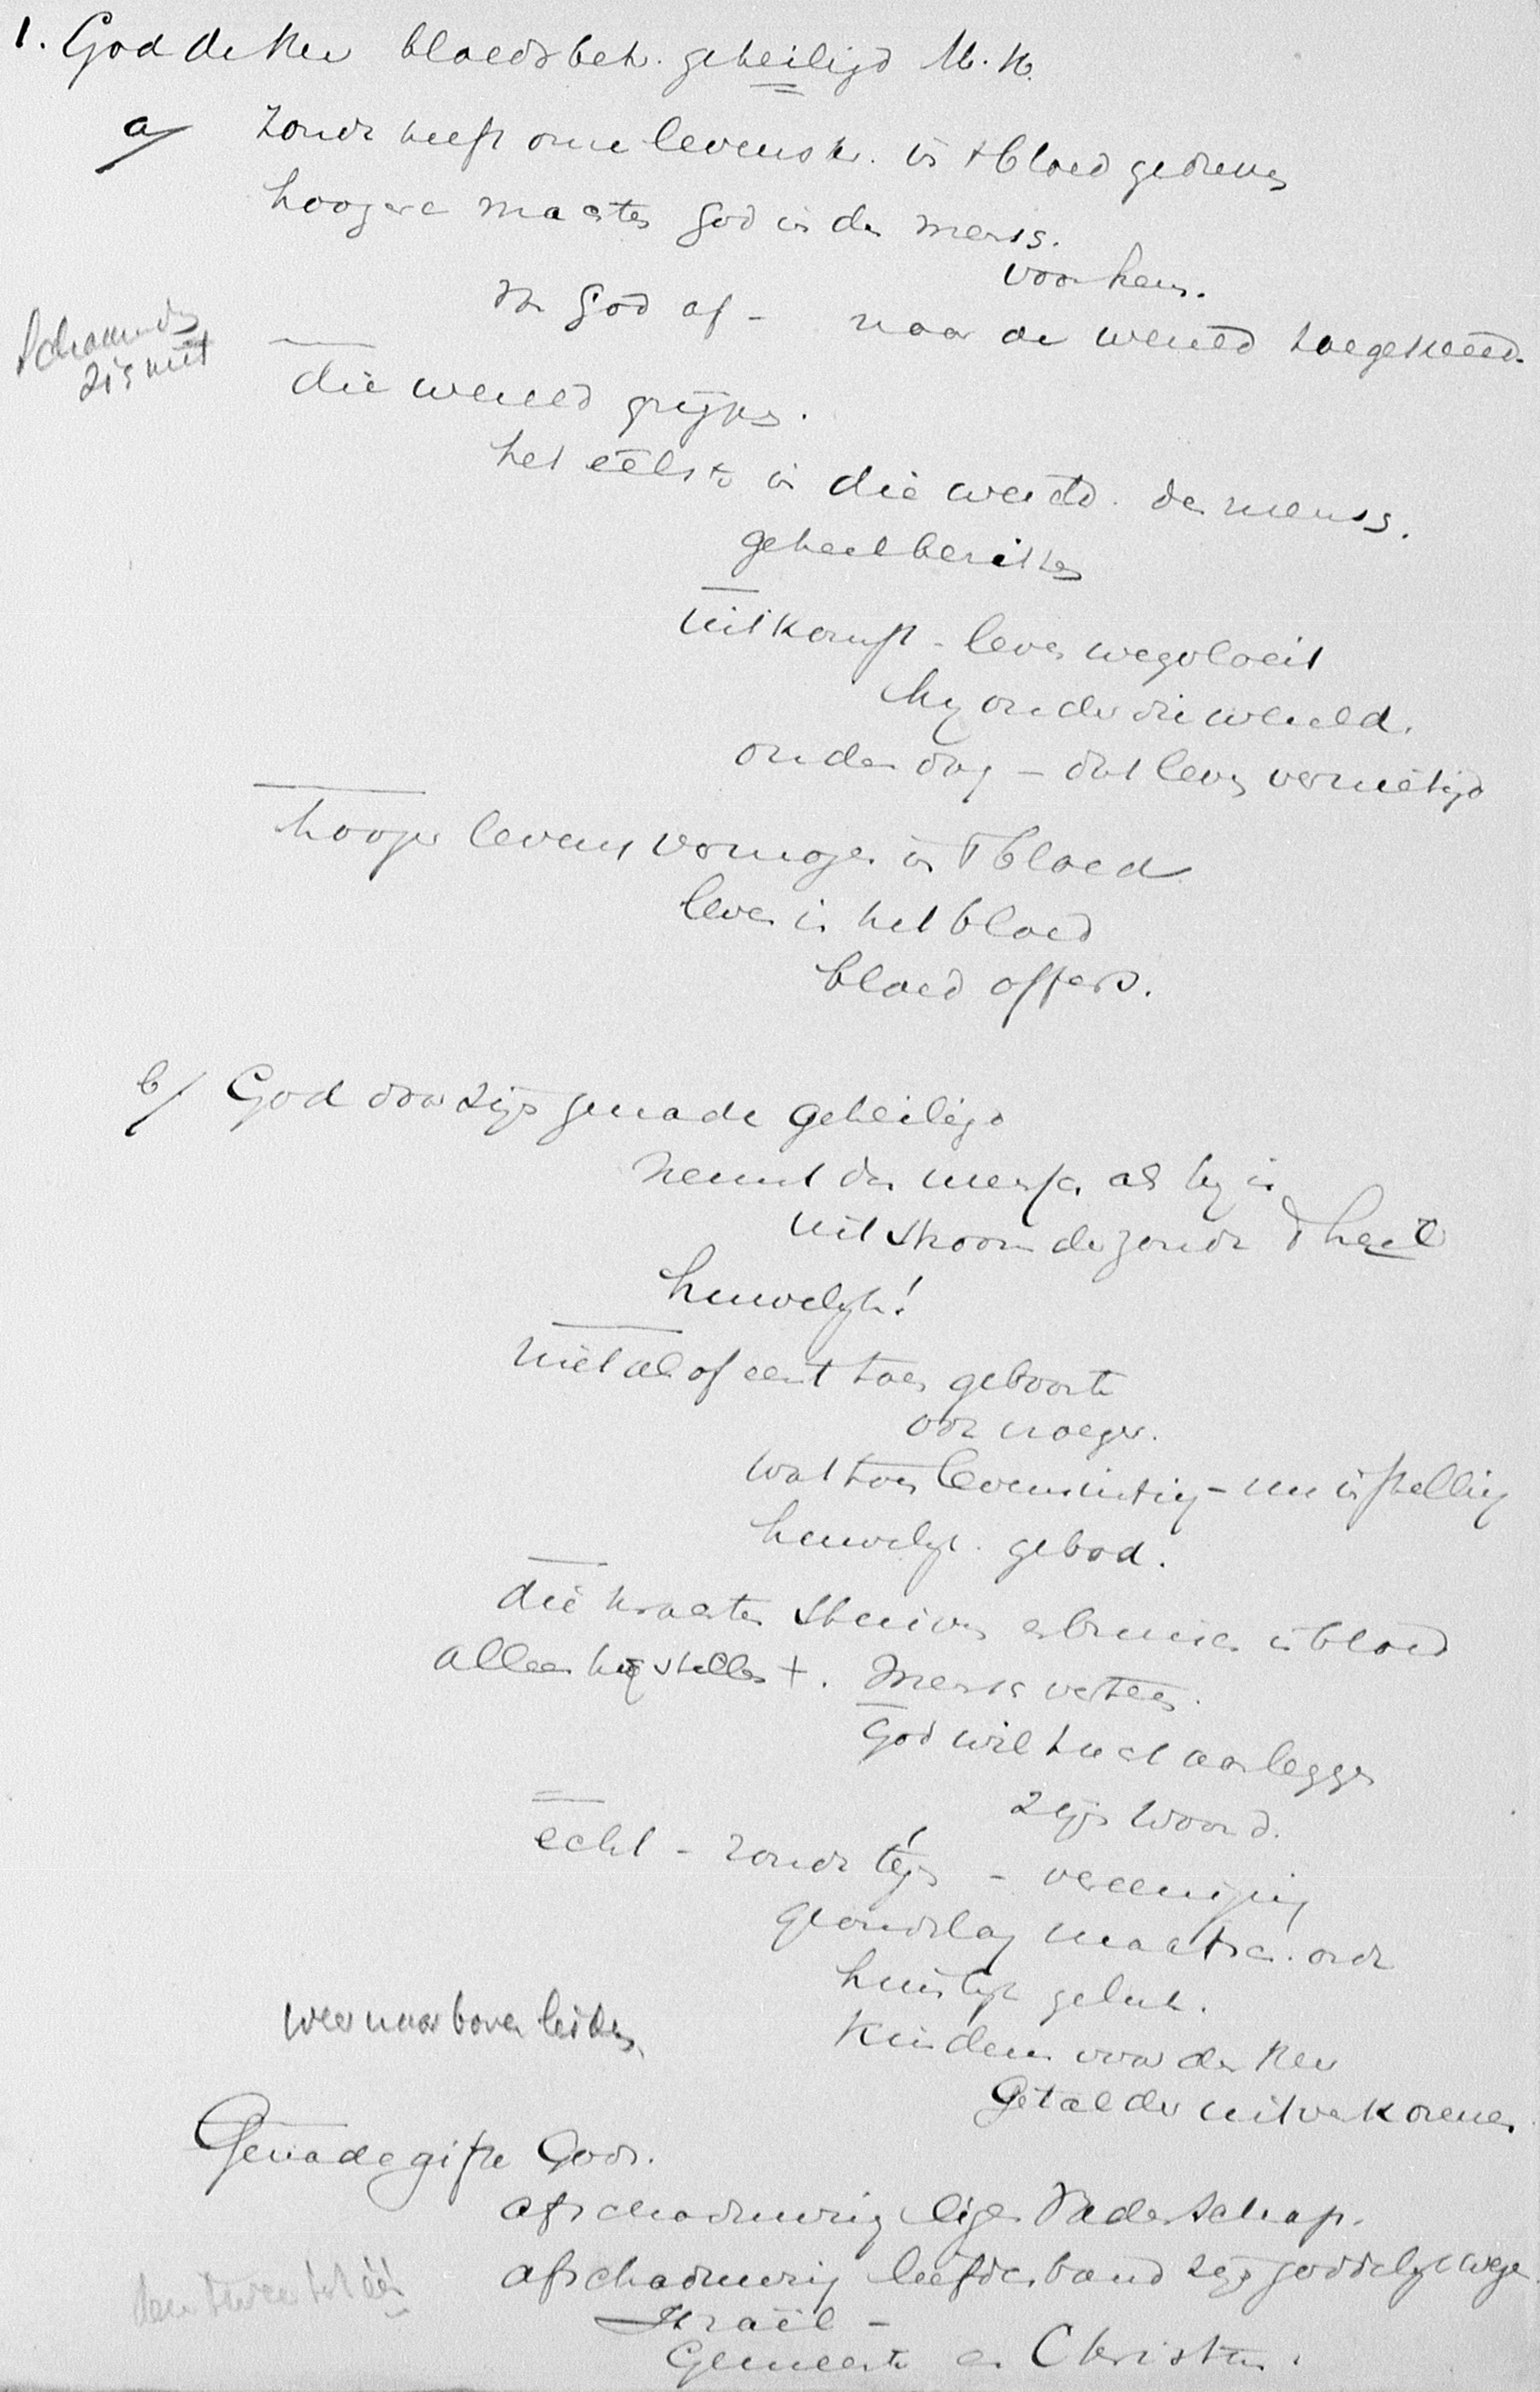 1. God de Heer bloedsbetr. geheiligd
a/ Zonde heeft onze levenskr. in 't bloed gedreven
hoogere machten God in den mensch.
voor hem.
van God af - naar de wereld toegekeerd.
Schaamden
zis niet
die wereld grijpen.
het eelste in die wereld. den mensch.
geheel bezitten
uitkomst - leven wegvloeit
hij onder die wereld.
onderdag - dat leven vernietigd
hooger levensvermogen in 't bloed
leven in het bloed
bloed offers.
b/ God door zijn genade geheiligd
neemt den mensch als hij is
uit stroom der zonde 't heil
huwelijk!
niet alsof eerst toen geboorte
ook vroeger.
wat toen levensuiting - nu instelling
huwelijk. gebod.
die krachten stuiven en bruisen in bloed
alleen hij stillen +. Mensch verteer.
God wil tucht aanleggen
Zijn Woord.
echt - zonder tegen - vereeniging
grondslag maatsch. orde
huislijk geluk.
Kinderen voor den Heer
Getal der uitverkorenen
weer naar boven leiden.
Genadegifte Gods.
afschaduwing eigen Vaderschap.
afschaduwing liefdesband zijn goddelijk wezen
Israël -
Gemeente en Christus.
den tweeden tot één